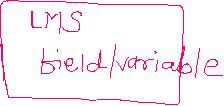 LMS
field/variable